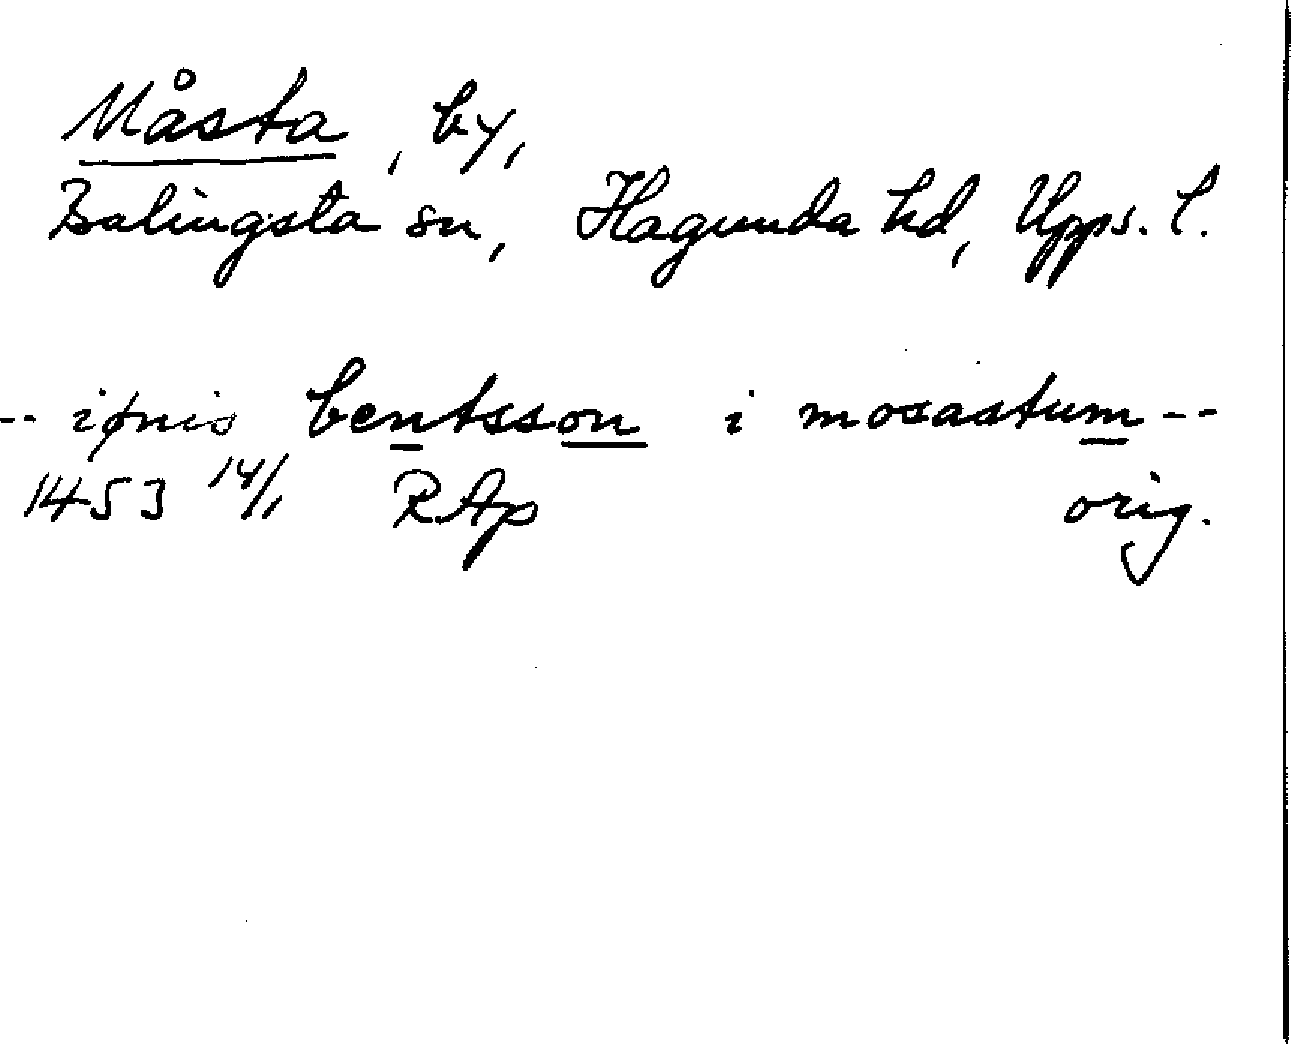 Måsta, by,
Balingsta sn, Hagunda hd, Upps. l.
-- iønis bentsson i mosastum --
1453 14/1 RAp orig.